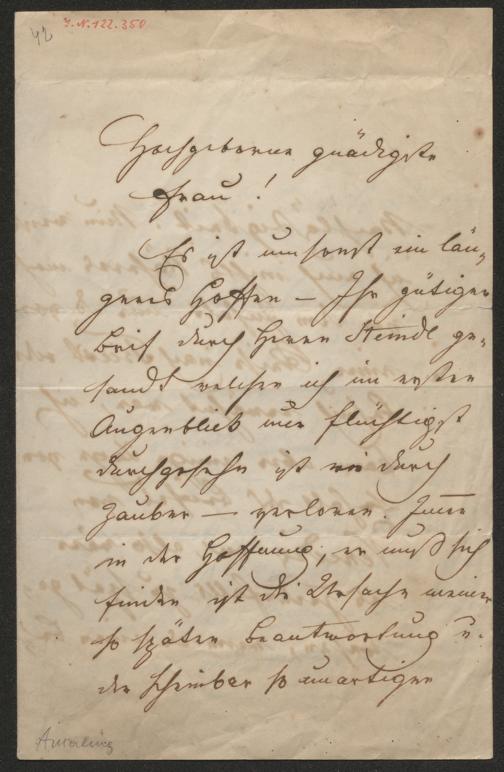 42
I.N. 122.350
Hochgeborne gnädigste
Frau!
Es ist umsonst ein län-
geres Hoffen – Ihr gütiger
Brief durch Herrn Steindl ge-
sandt welchen ich im ersten
Augenblick nur flüchtigst
durchgesehn ist wie durch
Zauber — verloren. Immer
in der Hoffnung, er muß sich
finden ist die Ursache meiner
so späten Beantwortung u.
der scheinbar so unartigen
Amerling